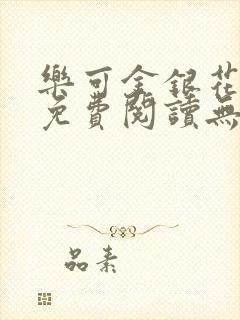 樂可金銀花
免費閱讀無
品素